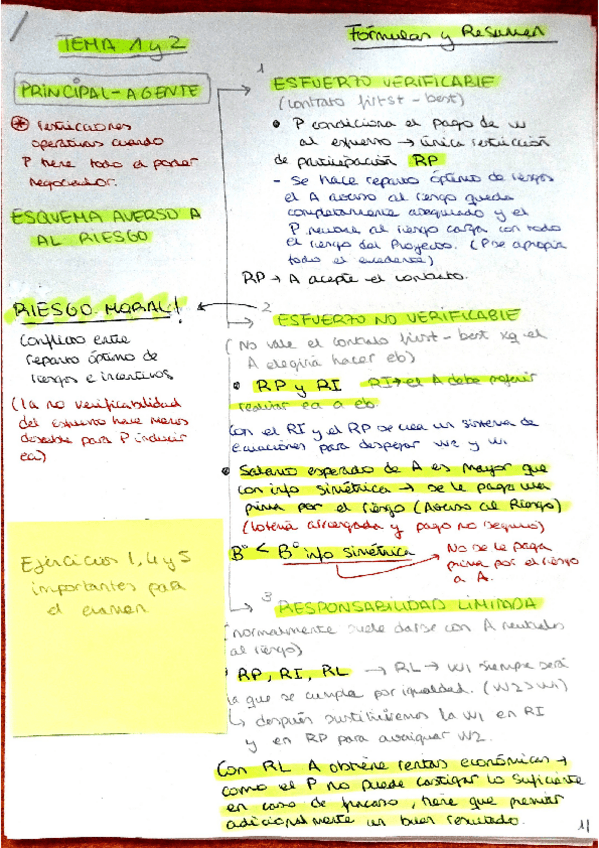 TEMA 1 y 2
Fórmulas y Resumen
PRINCIPAL-AGENTE
⊛ restricciones
operativas cuando
P tiene todo el poder
negociador.
ESQUEMA AVERSO A
AL RIESGO
RIESGO MORAL!
Conflicto entre
reparto óptimo de
riesgos e incentivos
(la no verificabilidad
del esfuerzo hace menos
deseable para P inducir
ea)
Ejercicios 1, 4 y 5
importantes para
el examen
1
ESFUERZO VERIFICABLE
(contrato first-best)
• P condiciona el pago de w
al esfuerzo → única restricción
de participación RP
- Se hace reparto óptimo de riesgos
el A averso al riesgo queda
completamente asegurado y el
P neutral al riesgo carga con todo
el riesgo del Proyecto. (P se apropia
todo el excedente)
RP → A acepte el contrato.
2
ESFUERZO NO VERIFICABLE
(No vale el contrato first-best xq el
A elegiría hacer eb)
• RP y RI RI → el A debe preferir
realizar ea a eb.
Con el RI y el RP se crea un sistema de
ecuaciones para despejar w2 y w1
• Salario esperado de A es mayor que
con info simétrica → se le paga una
prima por el riesgo (Averso al Riesgo)
(lotería arriesgada y pago no seguro)
Bº < Bº info simétrica
No se le paga
prima por el riesgo
a A.
3
RESPONSABILIDAD LIMITADA
(normalmente suele darse con A neutrales
al riesgo)
• RP, RI, RL → RL → w1 siempre será
la que se cumpla por igualdad. (w2>w1)
↳ después sustituimos la w1 en RI
y en RP para averiguar w2.
Con RL A obtiene rentas económicas →
como el P no puede castigar lo suficiente
en caso de fracaso, tiene que premiar
adicionalmente un buen resultado.
1